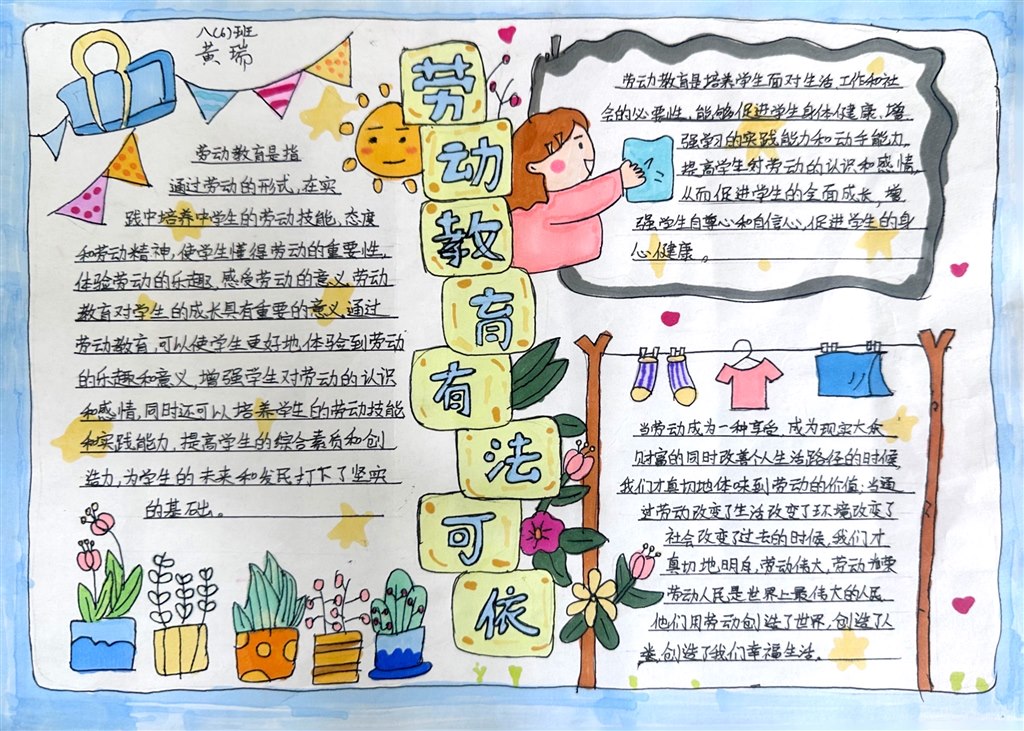 八(6)班
黄瑞
劳动教育有法可依
劳动教育是指
通过劳动的形式,在实
践中培养中学生的劳动技能,态度
和劳动精神,使学生懂得劳动的重要性,
体验劳动的乐趣,感受劳动的意义,劳动
教育对学生的成长具有重要的意义,通过
劳动教育,可以使学生更好地体验到劳动
的乐趣和意义,增强学生对劳动的认识
和感情,同时还可以培养学生的劳动技能
和实践能力,提高学生的综合素质和创
造力,为学生的未来和发民打下了坚实
的基础。
劳动教育是培养学生面对生活工作和社
会的必要性,能够促进学生身体健康,增
强学习的实践能力和动手能力,
提高学生对劳动的认识和感情,
从而促进学生的全面成长,增
强学生自尊心和自信心,促进学生的身
心健康。
当劳动成为一种享受,成为现实大众
财富的同时改善个人生活路径的时候,
我们才真切地体味到劳动的价值;当通
过劳动改变了生活改变了环境改变了
社会改变了过去的时候,我们才
真切地明白,劳动伟大,劳动光荣
劳动人民是世界上最伟大的人民
他们用劳动创造了世界,创造了人
类,创造了我们幸福生活。